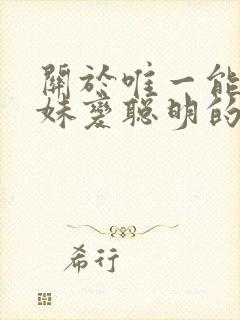 關於唯一能
妹變聰明的
希行